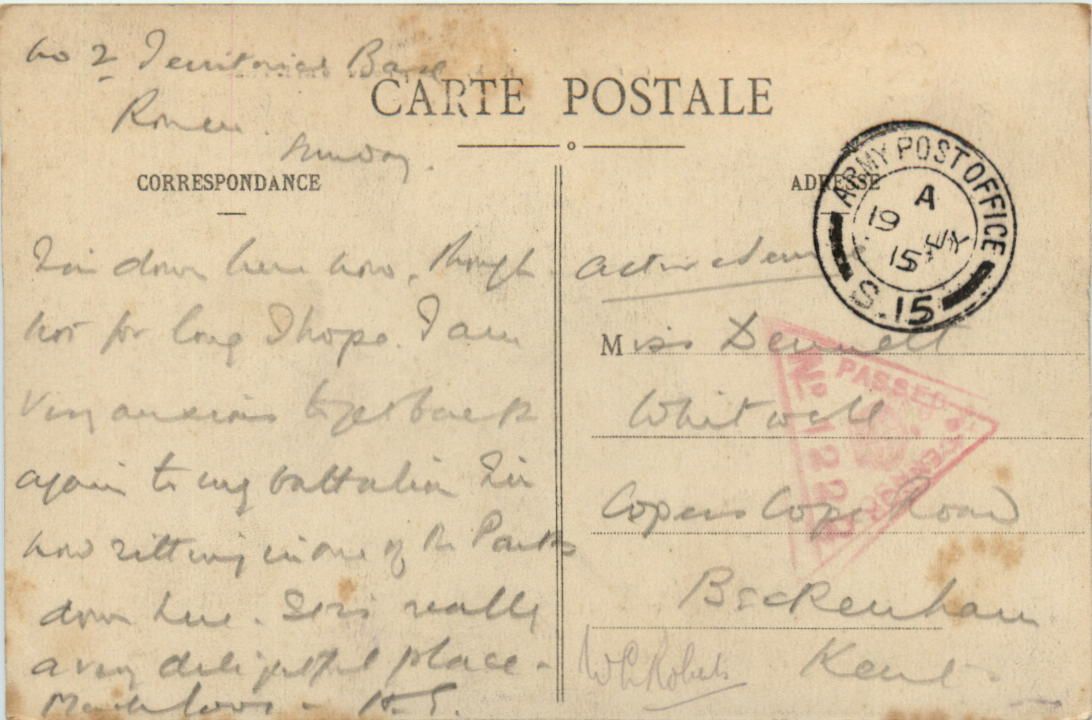 No 2 Territorial Base
Rouen.
Sunday.
CARTE POSTALE
CORRESPONDANCE
I'm down here now, though
not for long I hope. I am
very anxious to get back
again to my battalion I'm
now sitting in one of the Parks
down here. It is really
a very delightful place -
Much love -
ADRESSE
Active
Miss Dennett
Whitwell
Copers Cope Road
Beckenham
Kent
W C Roberts
ARMY POST OFFICE
A
19
15
S.15
PASSED
CENSOR
No 122